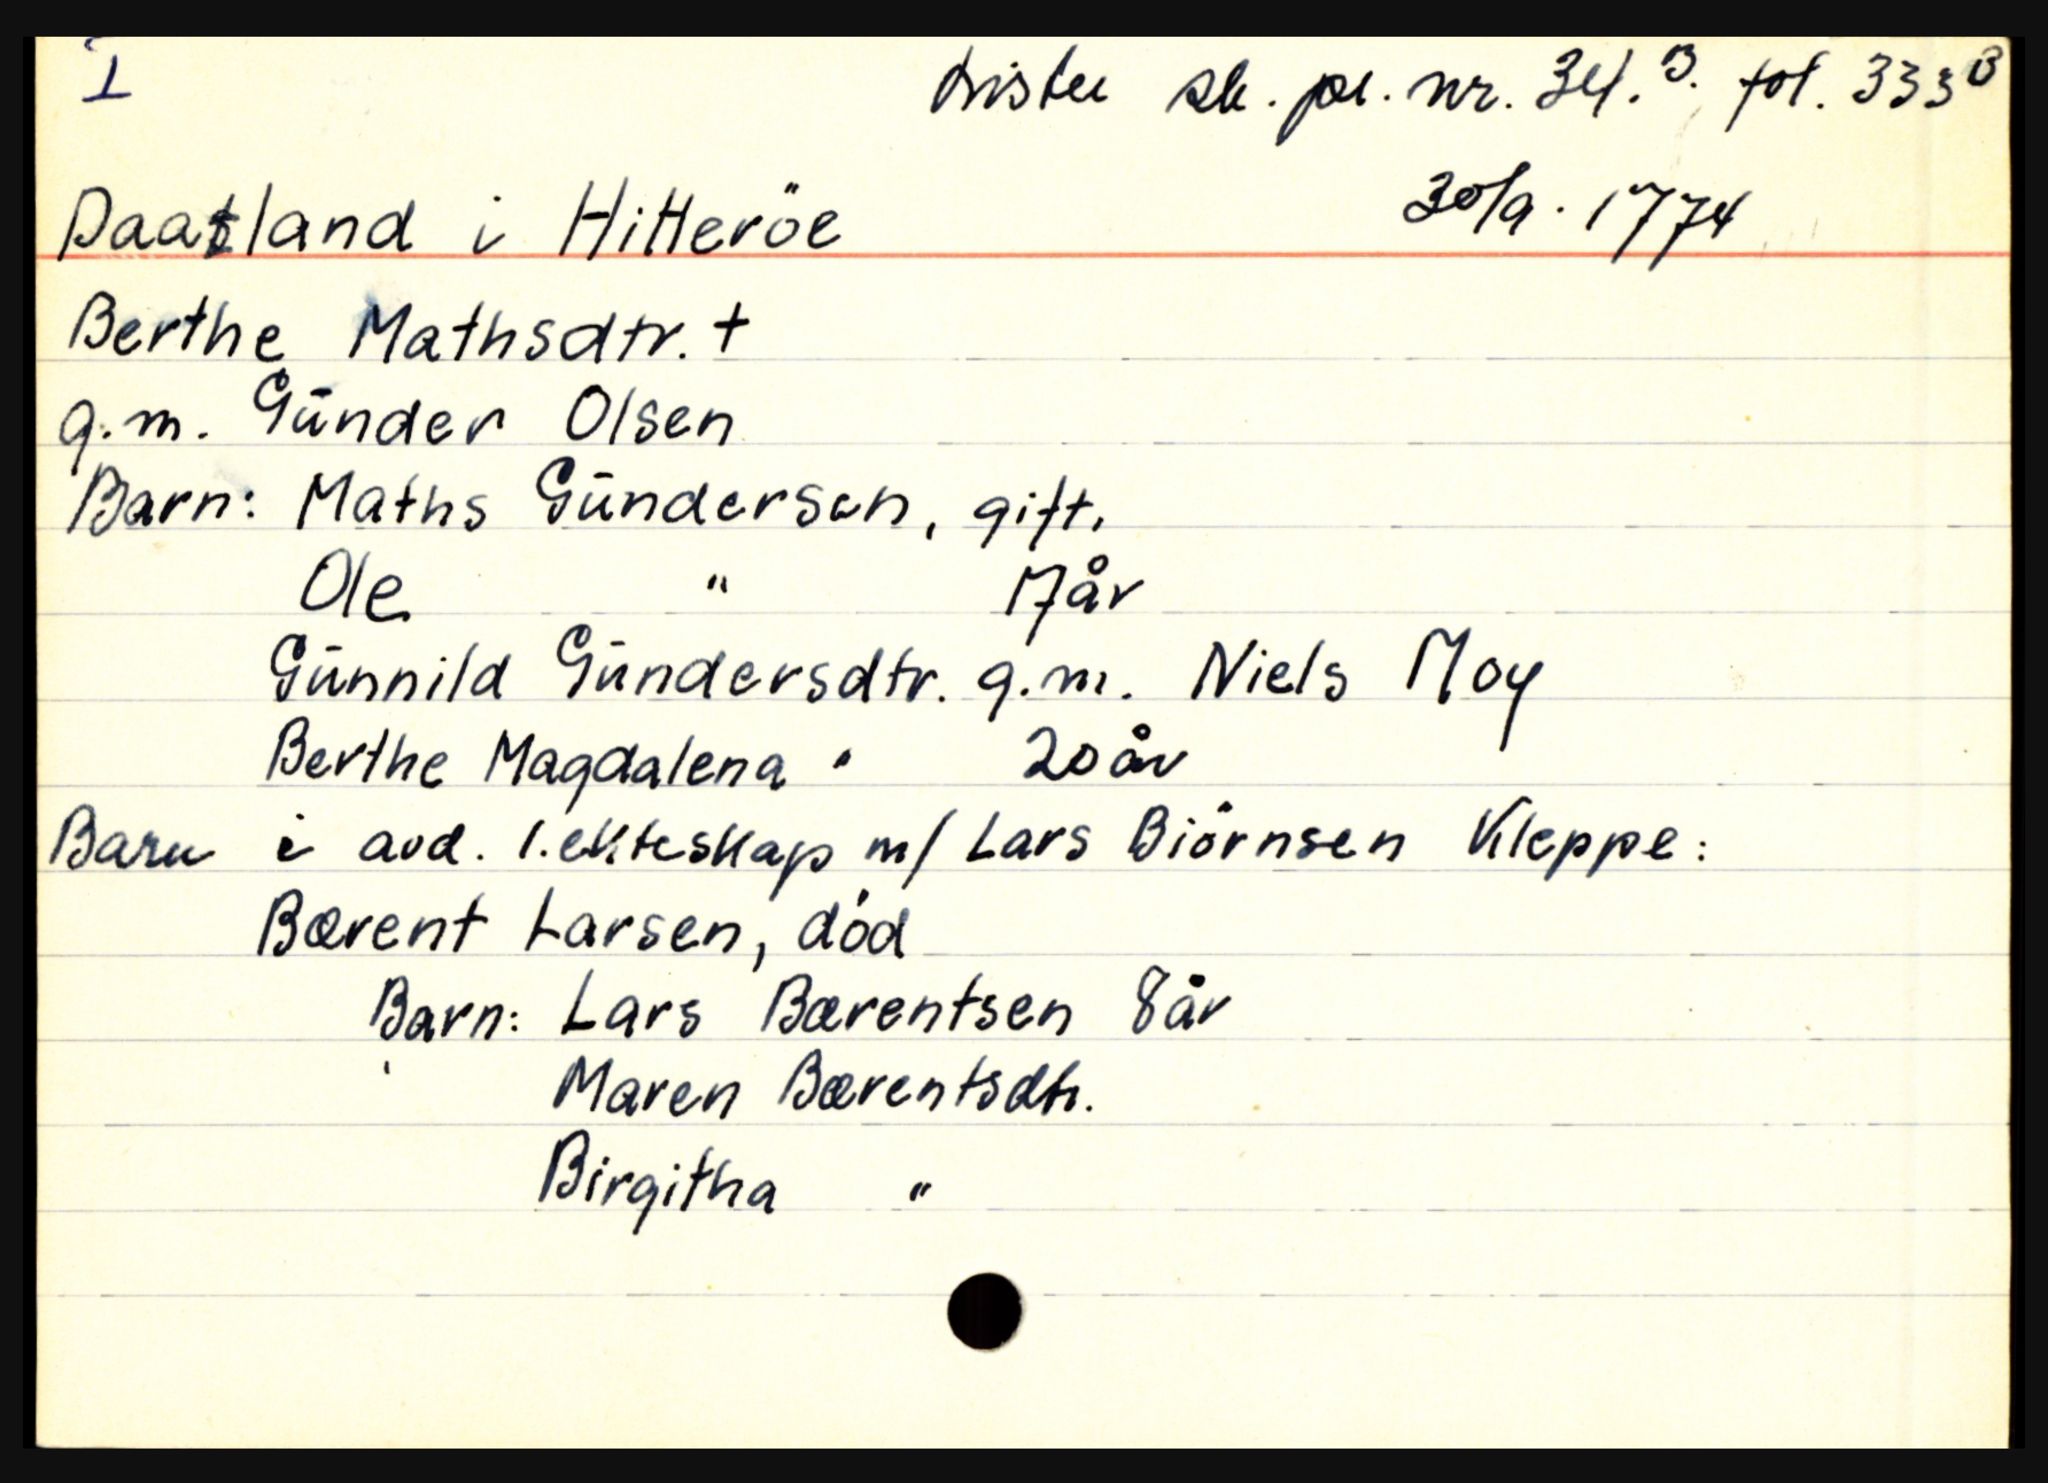 I
Lister sk. pr. nr. 34.B. fol. 333B
Daatland i Hitteröe 30/9. 1774
Berthe Mathsdtr. +
g.m. Günder Olsen
Barn: Maths Gündersen, gift.
Ole " 17 år
Günnild Gündersdtr. g.m. Niels Moy
Berthe Magdalena " 20 år
Barn i avd. 1. ekteskap m/ Lars Biörnsen Kleppe:
Bærent Larsen, död
Barn: Lars Bærentsen 8 år
Maren Bærentsdtr.
Birgitha "